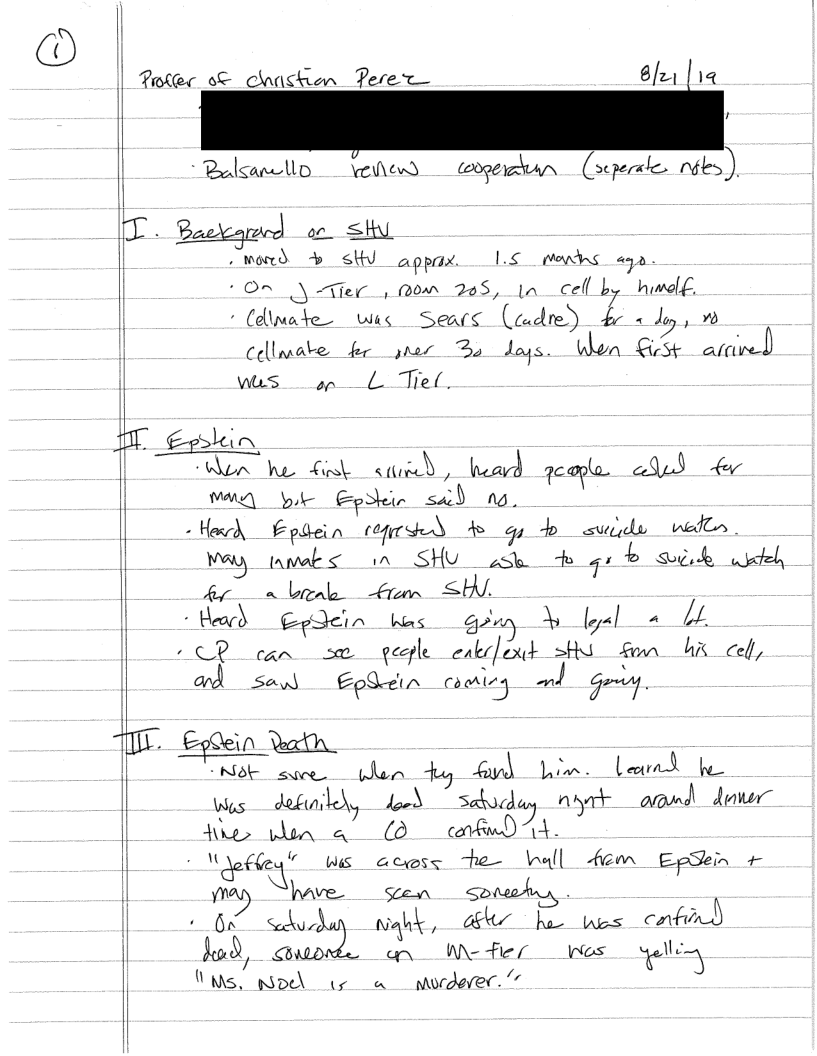 1
Proffer of Christian Perez 8/21/19
· Balsamello review cooperation (seperate notes).
I. Background on SHU
· moved to SHU approx. 1.5 months ago.
· On J-Tier, room 205, in cell by himself.
· Cellmate was Sears (cadre) for a day, no
cellmate for over 30 days. When first arrived
was on L Tier.
II. Epstein
· When he first arrived, heard people asked for
money but Epstein said no.
· Heard Epstein requested to go to suicide watch.
Many inmates in SHU ask to go to suicide watch
for a break from SHU.
· Heard Epstein was going to legal a lot.
· CP can see people enter/exit SHU from his cell,
and saw Epstein coming and going.
III. Epstein Death
· Not sure when they found him. Learned he
was definitely dead Saturday night around dinner
time when a CO confirmed it.
· "Jeffrey" was across the hall from Epstein +
may have seen something.
· On Saturday night, after he was confirmed
dead, someone on M-tier was yelling
"Ms. Noel is a murderer."